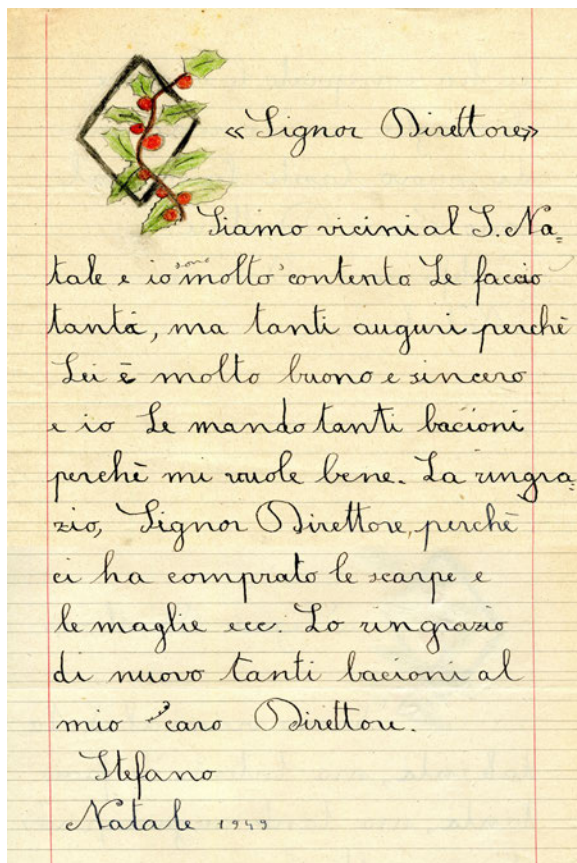 «Signor Direttore»
Siamo vicini al S. Na=
tale e io sono molto contento. Le faccio
tanti, ma tanti auguri perchè
Lei è molto buono e sincero
e io Le mando tanti bacioni
perchè mi vuole bene. La ringra=
zio, Signor Direttore, perchè
ci ha comprato le scarpe e
le maglie ecc. Lo ringrazio
di nuovo tanti bacioni al
mio caro Direttore.
Stefano
Natale 1949